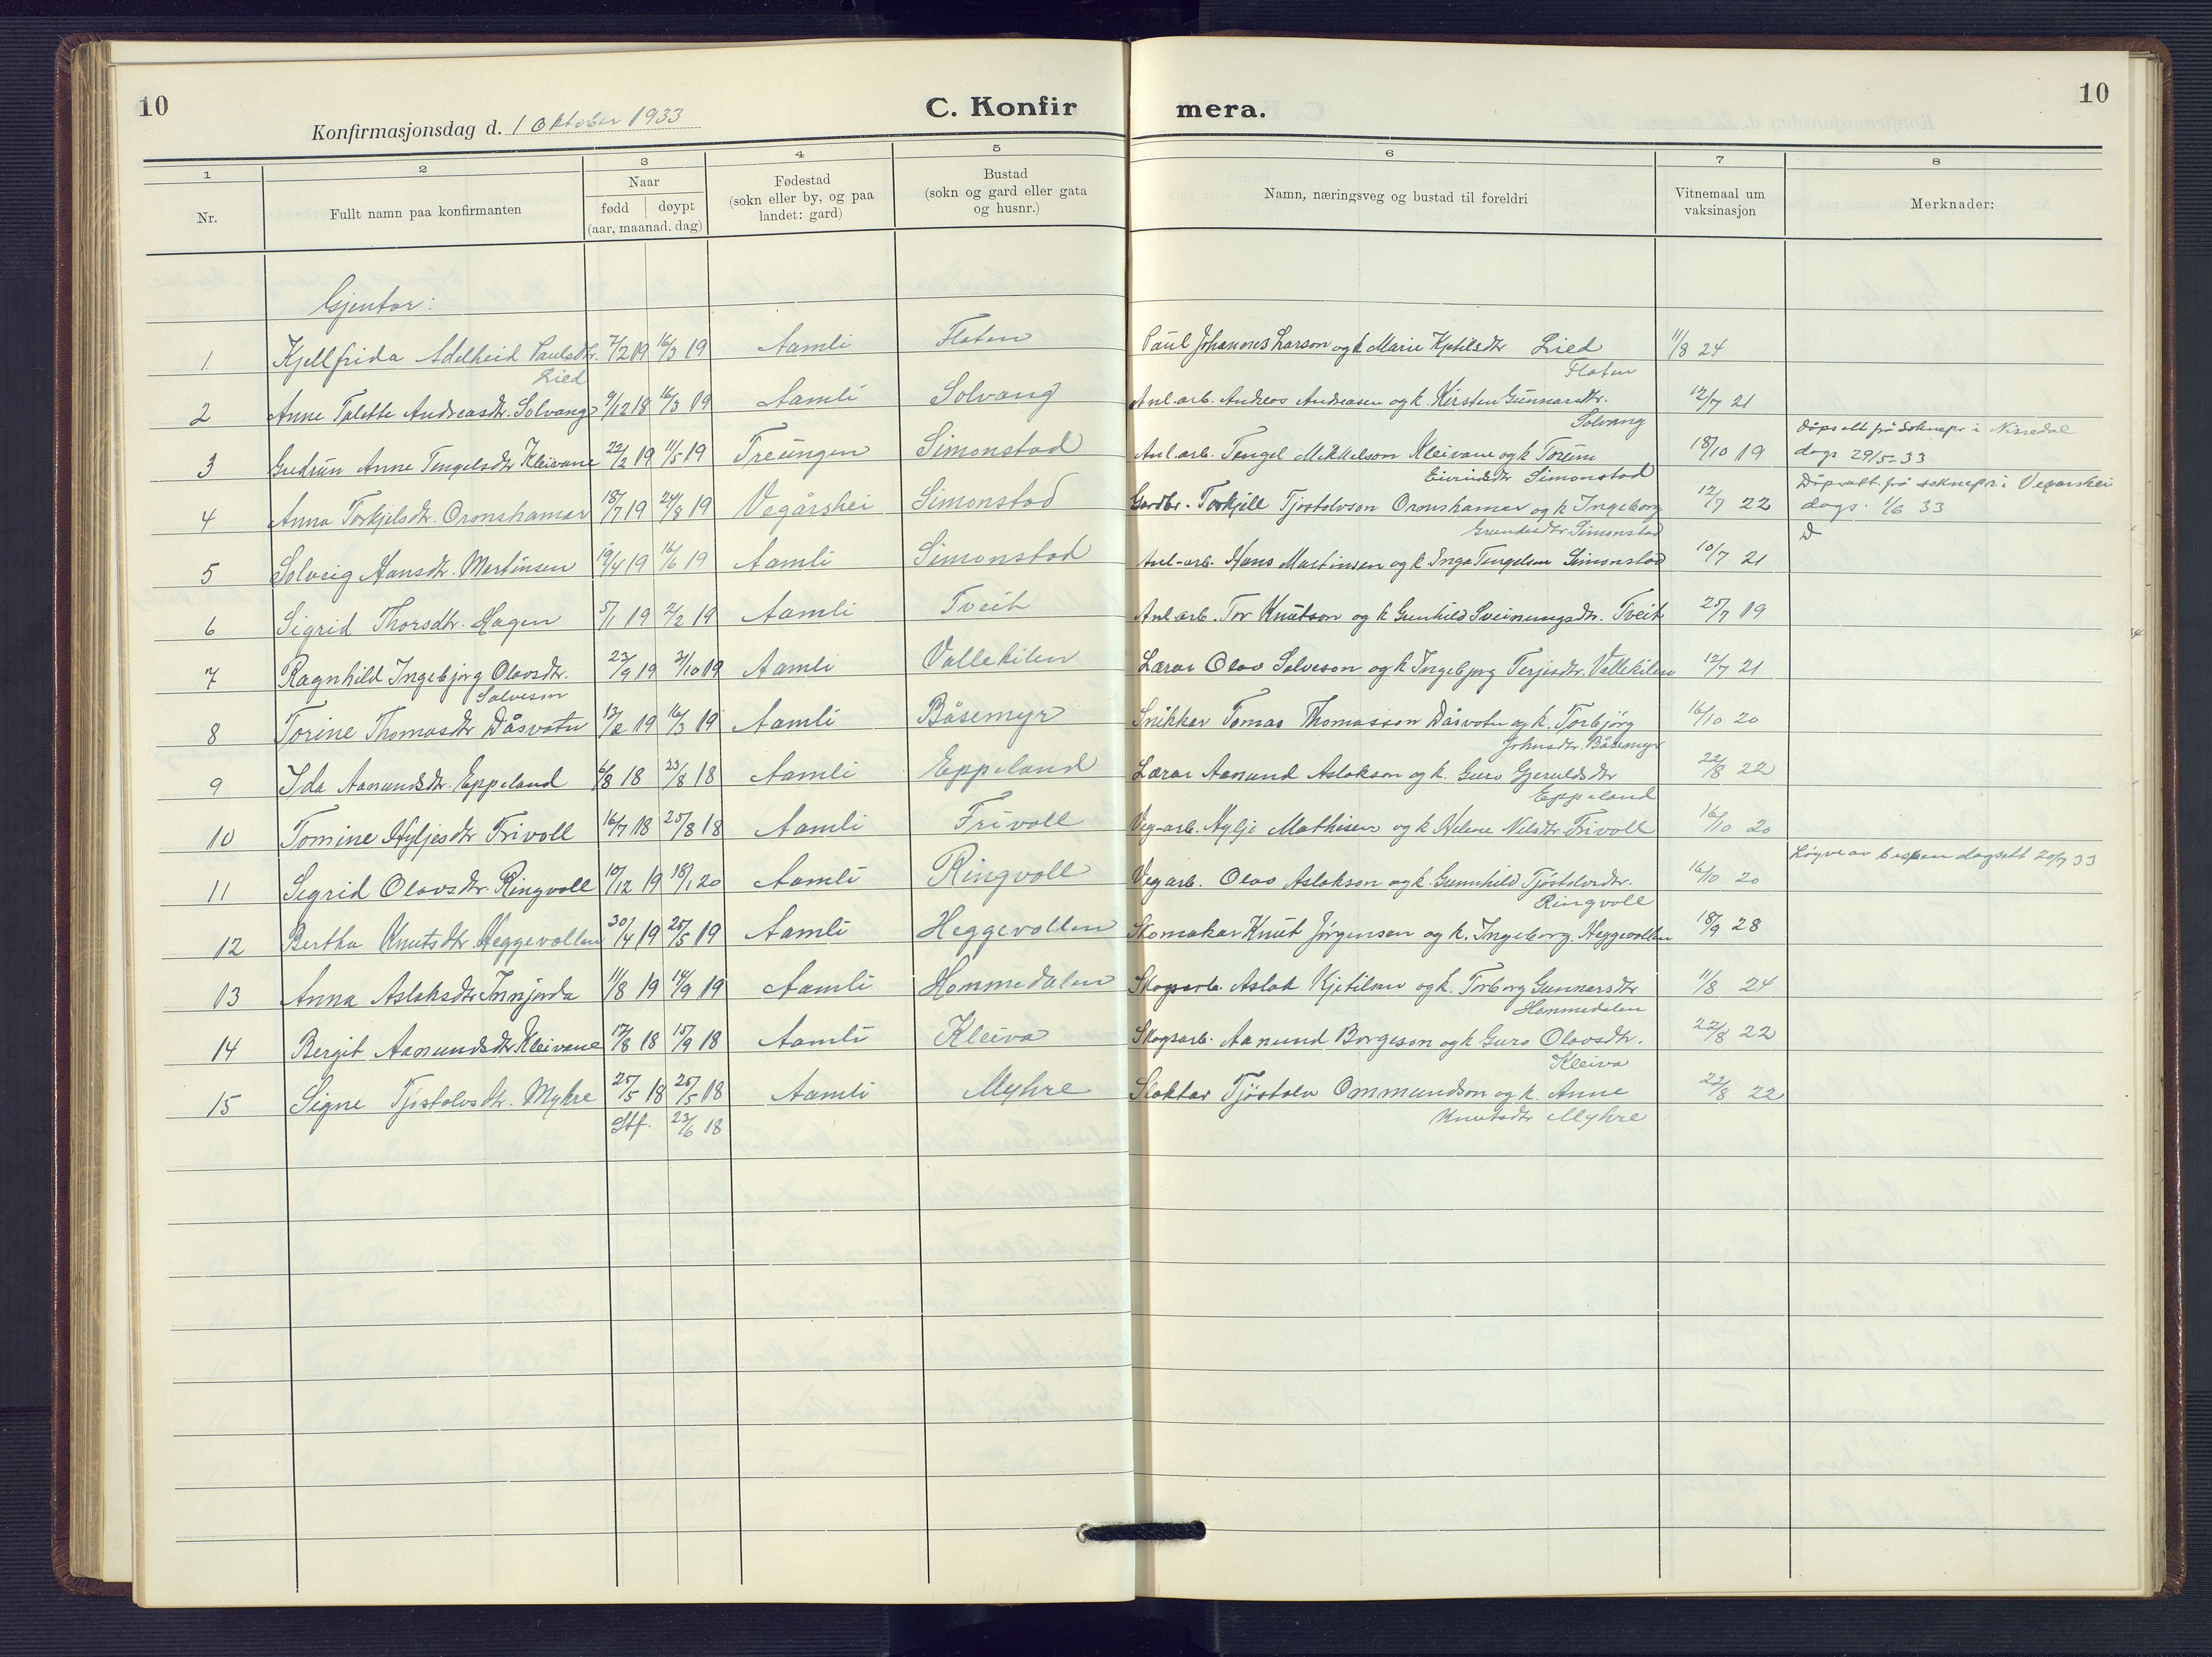 10
Konfirmasjonsdag d. 1 Oktober 1933
C. Konfirmera.
10
1 2 3 4 5 6 7 8
Nr.
Fullt namn paa konfirmanten
Naar
fødd døypt
(aar, maanad. dag)
Fødestad
(sokn eller by, og paa
landet: gard)
Bustad
(sokn og gard eller gata
og husnr.)
Namn, næringsveg og bustad til foreldri
Vitnemaal um
vaksinasjon
Merknader:
Gjentor:
1. Kjellfrida Adelheid Paulsdtr. 7/2 19 16/3 19 Aamli Flaten Paul Johannes Larson og k Marie Kjetilsdtr Lied 11/8 24
Lied Flaten
2 Anne Talette Andreasdtr. Solvang 9/12 18 16/3 19 Aamli Solvang Anl. arb. Andreas Andreasen og k. Kirsten Gunnarsdtr. 12/7 21
Solvang Dåpsatt frå Soknepr i Nissedal
3 Gudrun Anne Tengelsdtr Kleivane 22/2 19 11/5 19 Treungen Simonstad Anl. arb. Tengel Mikkelson Kleivane og k Torine 18/10 19 dags 29/5-33
Eivindsdtr Simonstad Dåpsatt. frå soknepr i Vegarshei
4 Anna Torkjelsdtr. Oronshamar 18/7 19 24/8 19 Vegårshei Simonstad Gardbr. Torkjell Tjostolvson Oronshamar og k Ingeborg 12/7 22 dags. 1/6 33
Simonstad D
5 Solveig Hansdtr. Martinsen 19/4 19 16/6 19 Aamli Simonstad Anl-arb. Hans Martinsen og k Inga Tengelsen Simonstad 10/7 21
6 Sigrid Thorsdtr. Hagen 5/1 19 2/2 19 Aamli Tveit Anl. arb. Tor Knutson og k Gunhild Sveinungsdtr. Tveit 25/7 19
7 Ragnhild Ingebjørg Olavsdtr. 23/9 19 3/10 19 Aamli Vallekilen Lærar Olav Salveson og k Ingebjørg Terjesdtr. Vallekilen 12/7 21
Salveson
8 Torine Thomasdtr Dåsvatn 13/2 19 16/3 19 Aamli Båsemyr Snikker Tomas Thomasson Dåsvatn og k. Torbjørg 16/10 20
Johnsdtr. Båsemyr
9 Ida Aanundsdtr. Eppeland 6/8 18 23/8 18 Aamli Eppeland Lærar Aanund Aslakson og k. Guro Gjeruldsdtr 22/8 22
Eppeland
10 Tomine Hyljesdtr Trivoll 16/7 18 25/8 18 Aamli Trivoll Veg-arb. Hylje Mathisen og k Helene Nilsdtr Trivoll 16/10 20
Løyve av bispen dagsett 20/7 33
11 Sigrid Olavsdtr. Ringvoll 10/12 19 18/1 20 Aamli Ringvoll Vegarb. Olav Aslakson og k. Gunnhild Tjøstolvsdtr. 16/10 20
Ringvoll
12 Bertha Knutsdtr. Heggevollen 30/4 19 25/5 19 Aamli Heggevollen Skomakar Knut Jørgensen og k. Ingeborg. Heggevollen 18/9 28
13 Anna Aslaksdtr Innjorda 11/8 19 14/9 19 Aamli Hommedalen Skogsarb. Aslak Kjetilson og k. Torborg Gunnarsdtr 11/8 24
Hommedalen
14 Bergit Aanundsdtr Kleivane 17/8 18 15/9 18 Aamli Kleiva Skogsarb. Aanund Borgeson og k Guro Olavsdtr. 22/8 22
Kleiva
15 Signe Tjøstolvsdtr. Myhre 25/5 18 25/5 18 Aamli Myhre Slaktar Tjøstolv Ommundson og k. Anne 22/8 22
Stf. 23/6 18 Knutsdtr Myhre